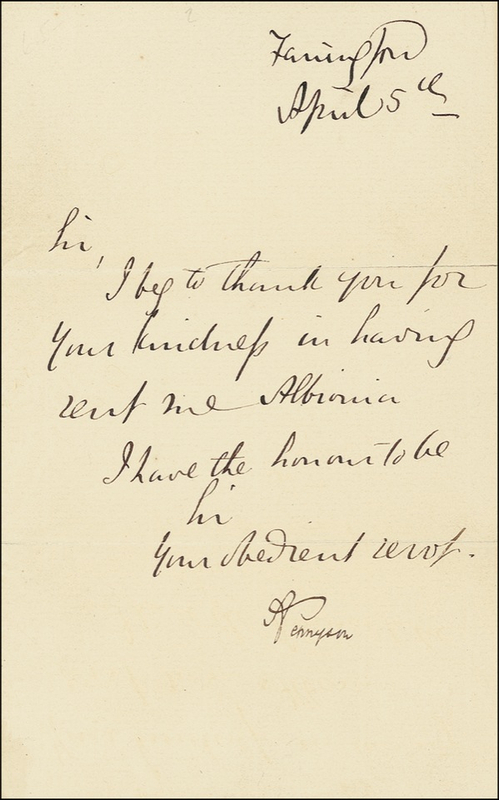 Farringford
April 5th
Sir,
I beg to thank you for
your kindness in having
sent me Albionia
I have the honour to be
Sir
Your obedient servt.
ATennyson